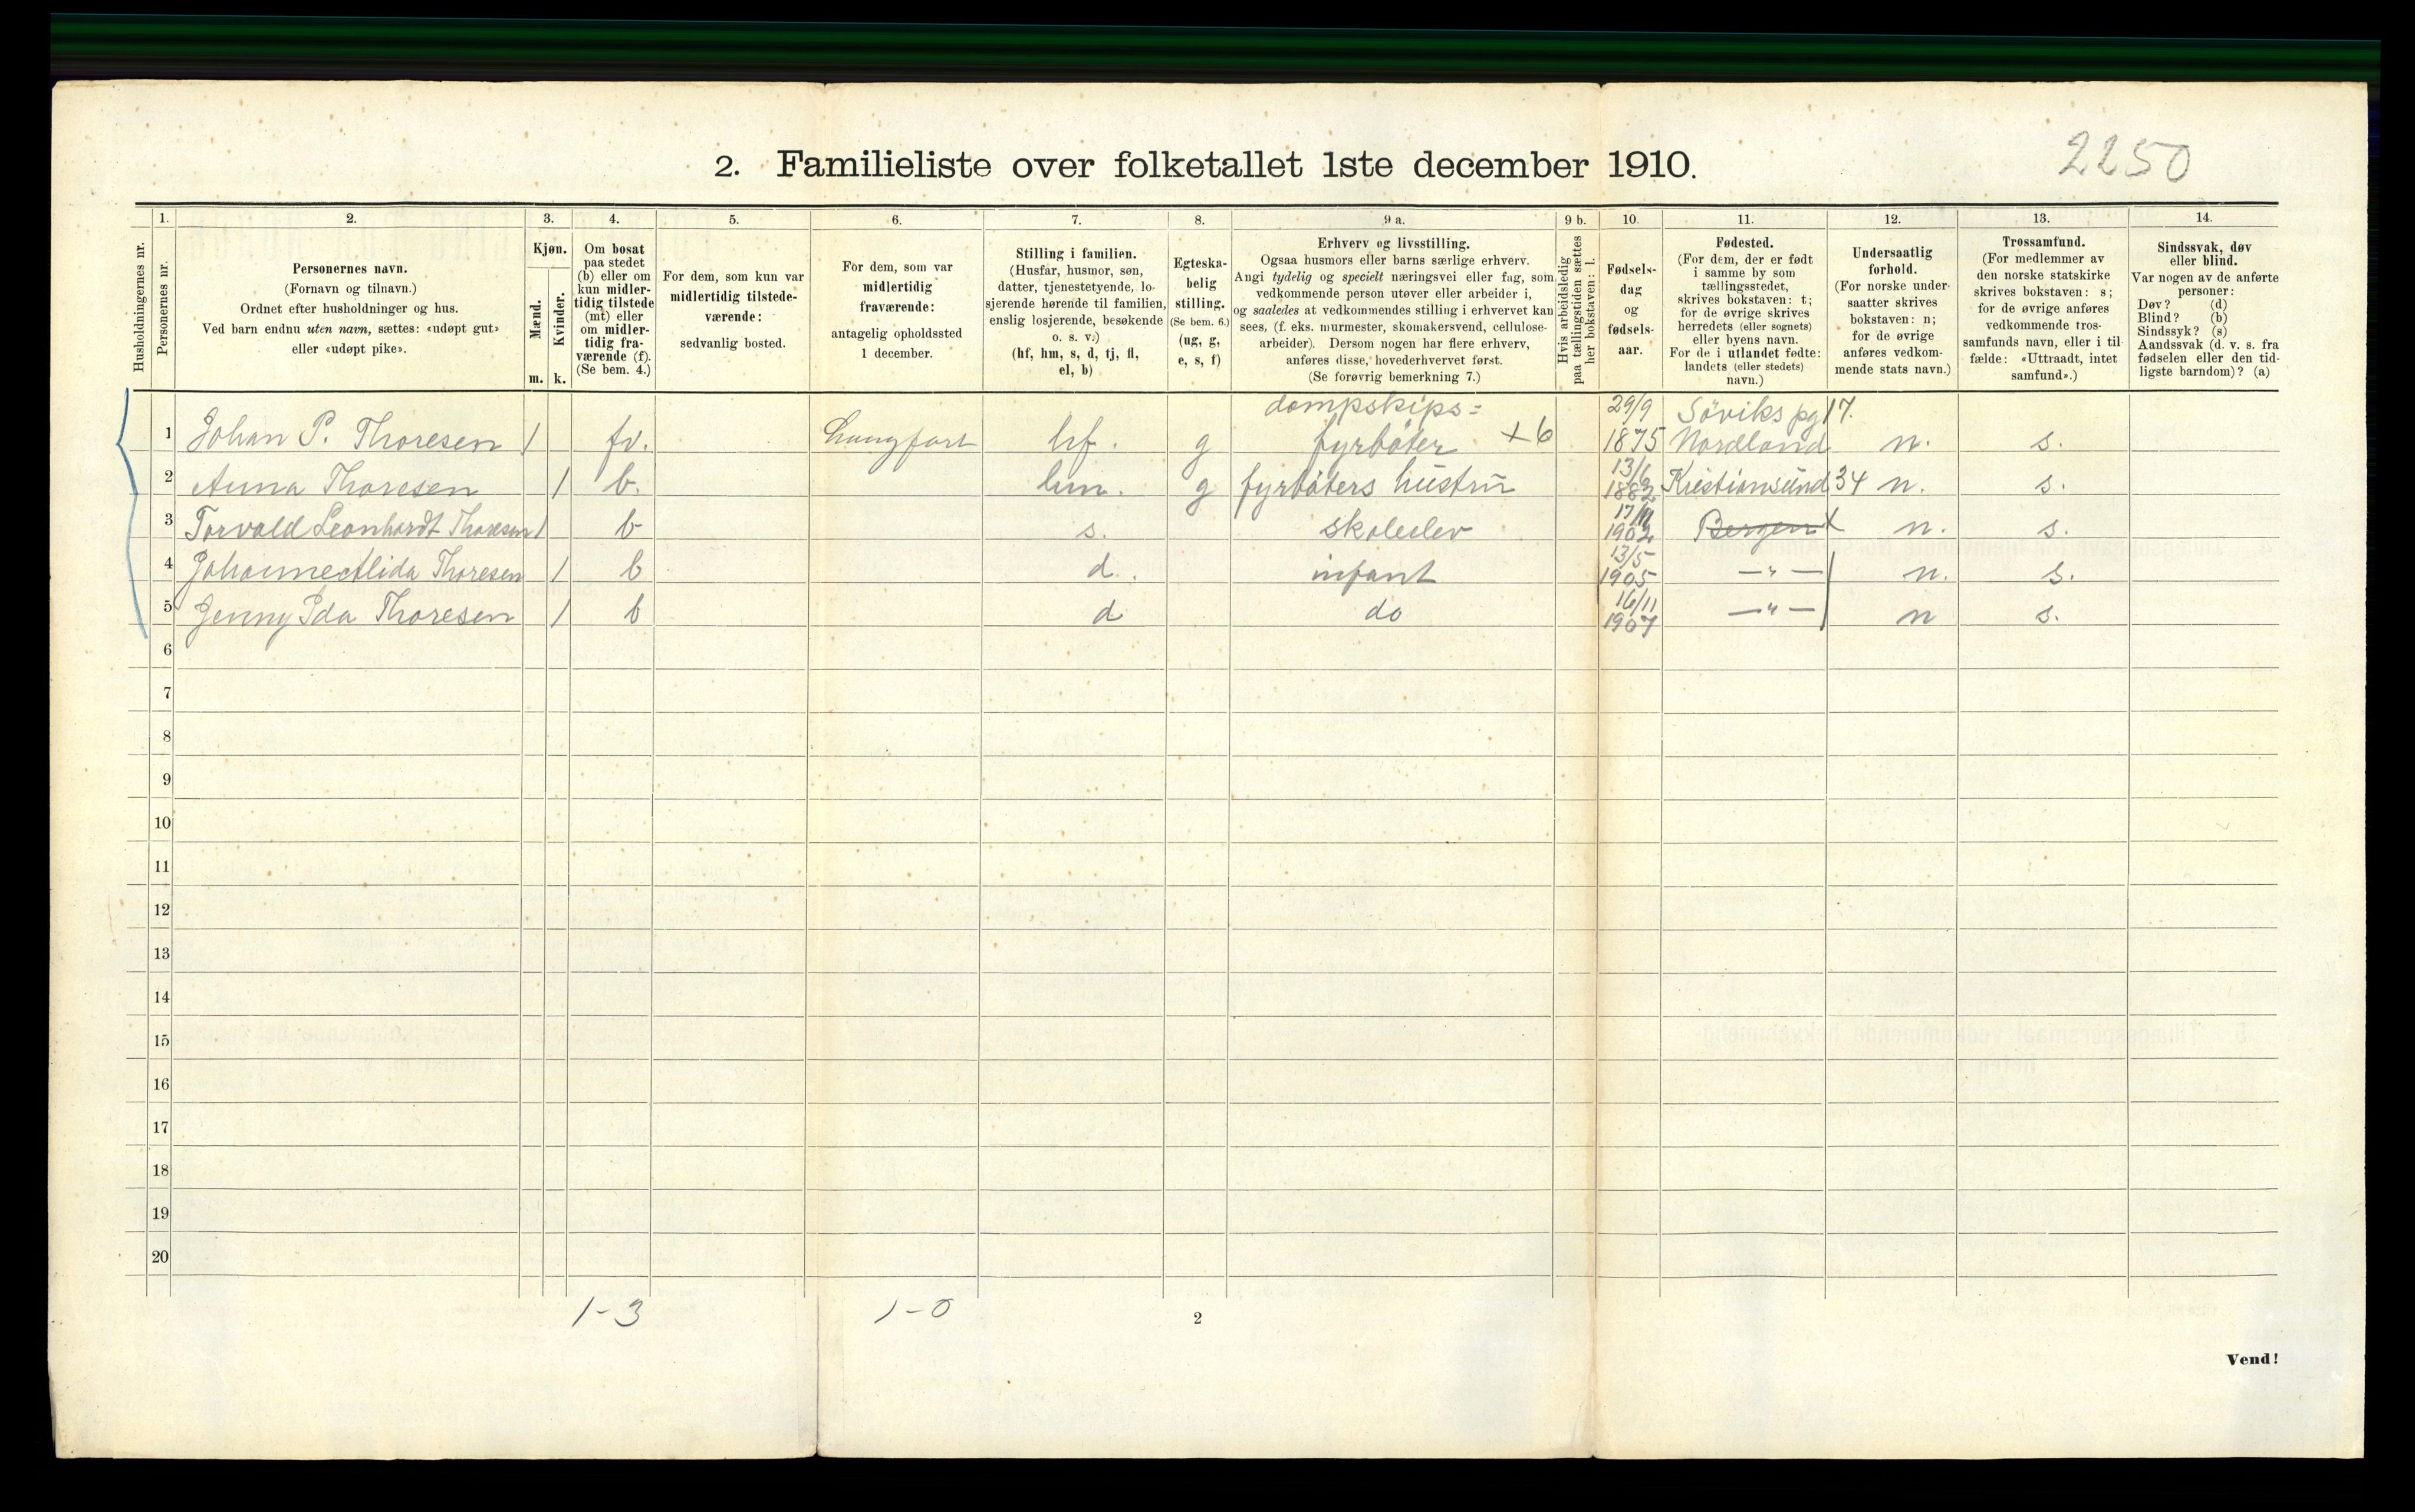 2250
2. Familieliste over folketallet 1ste december 1910.
Husholdningernes nr.
1. Personernes nr.
2.
Personernes navn.
(Fornavn og tilnavn.)
Ordnet efter husholdninger og hus.
Ved barn endnu uten navn, sættes: «udøpt gut»
eller «udøpt pike».
3.
Kjøn.
Mænd. Kvinder.
m. k.
4.
Om bosat
paa stedet
(b) eller om
kun midler-
tidig tilstede
(mt) eller
om midler-
tidig fra-
værende (f).
(Se bem. 4.)
5.
For dem, som kun var
midlertidig tilstede-
værende:
sedvanlig bosted.
6.
For dem, som var
midlertidig
fraværende:
antagelig opholdssted
1 december.
7.
Stilling i familien.
(Husfar, husmor, søn,
datter, tjenestetyende, lo-
sjerende hørende til familien,
enslig losjerende, besøkende
o. s. v.)
(hf, hm, s, d, tj, fl,
el, b)
8.
Egteska-
belig
stilling.
(Se bem. 6.)
(ug, g,
e, s, f)
9 a.
Erhverv og livsstilling.
Ogsaa husmors eller barns særlige erhverv.
Angi tydelig og specielt næringsvei eller fag, som
vedkommende person utøver eller arbeider i,
og saaledes at vedkommendes stilling i erhvervet kan
sees, (f. eks. murmester, skomakersvend, cellulose-
arbeider). Dersom nogen har flere erhverv,
anføres disse, hovederhvervet først.
(Se forøvrig bemerkning 7.)
9 b.
Hvis arbeidsledig
paa tællingstiden sættes
her bokstaven: l.
10.
Fødsels-
dag
og
fødsels-
aar.
11.
Fødested.
(For dem, der er født
i samme by som
tællingsstedet,
skrives bokstaven: t;
for de øvrige skrives
herredets (eller sognets)
eller byens navn.
For de i utlandet fødte:
landets (eller stedets)
navn.)
12.
Undersaatlig
forhold.
(For norske under-
saatter skrives
bokstaven: n;
for de øvrige
anføres vedkom-
mende stats navn.)
13.
Trossamfund.
(For medlemmer av
den norske statskirke
skrives bokstaven: s;
for de øvrige anføres
vedkommende tros-
samfunds navn, eller i til-
fælde: «Uttraadt, intet
samfund».)
14.
Sindssvak, døv
eller blind.
Var nogen av de anførte
personer:
Døv? (d)
Blind? (b)
Sindssyk? (s)
Aandssvak (d. v. s. fra
fødselen eller den tid-
ligste barndom)? (a)
dampskips= 29/9 Söviks pg 17.
1 Johan P. Thoresen 1 fv. Langfart hf. g fyrböter +6 1875 Nordland n. s.
13/6
2 Anna Thoresen 1 b. hm. g fyrböters hustru 1882 Kristiansund 34 n. s.
17/11
3 Torvald Leonhardt Thoresen 1 b s. skoleelev 1902 Bergen t n. s.
13/5
4 Johanne Alida Thoresen 1 b d. infant 1905 —"— n. s.
16/11
5 Jenny Ida Thoresen 1 b d do 1907 —"— n s.
6
7
8
9
10
11
12
13
14
15
16
17
18
19
20
1-3 1-0
2
Vend!